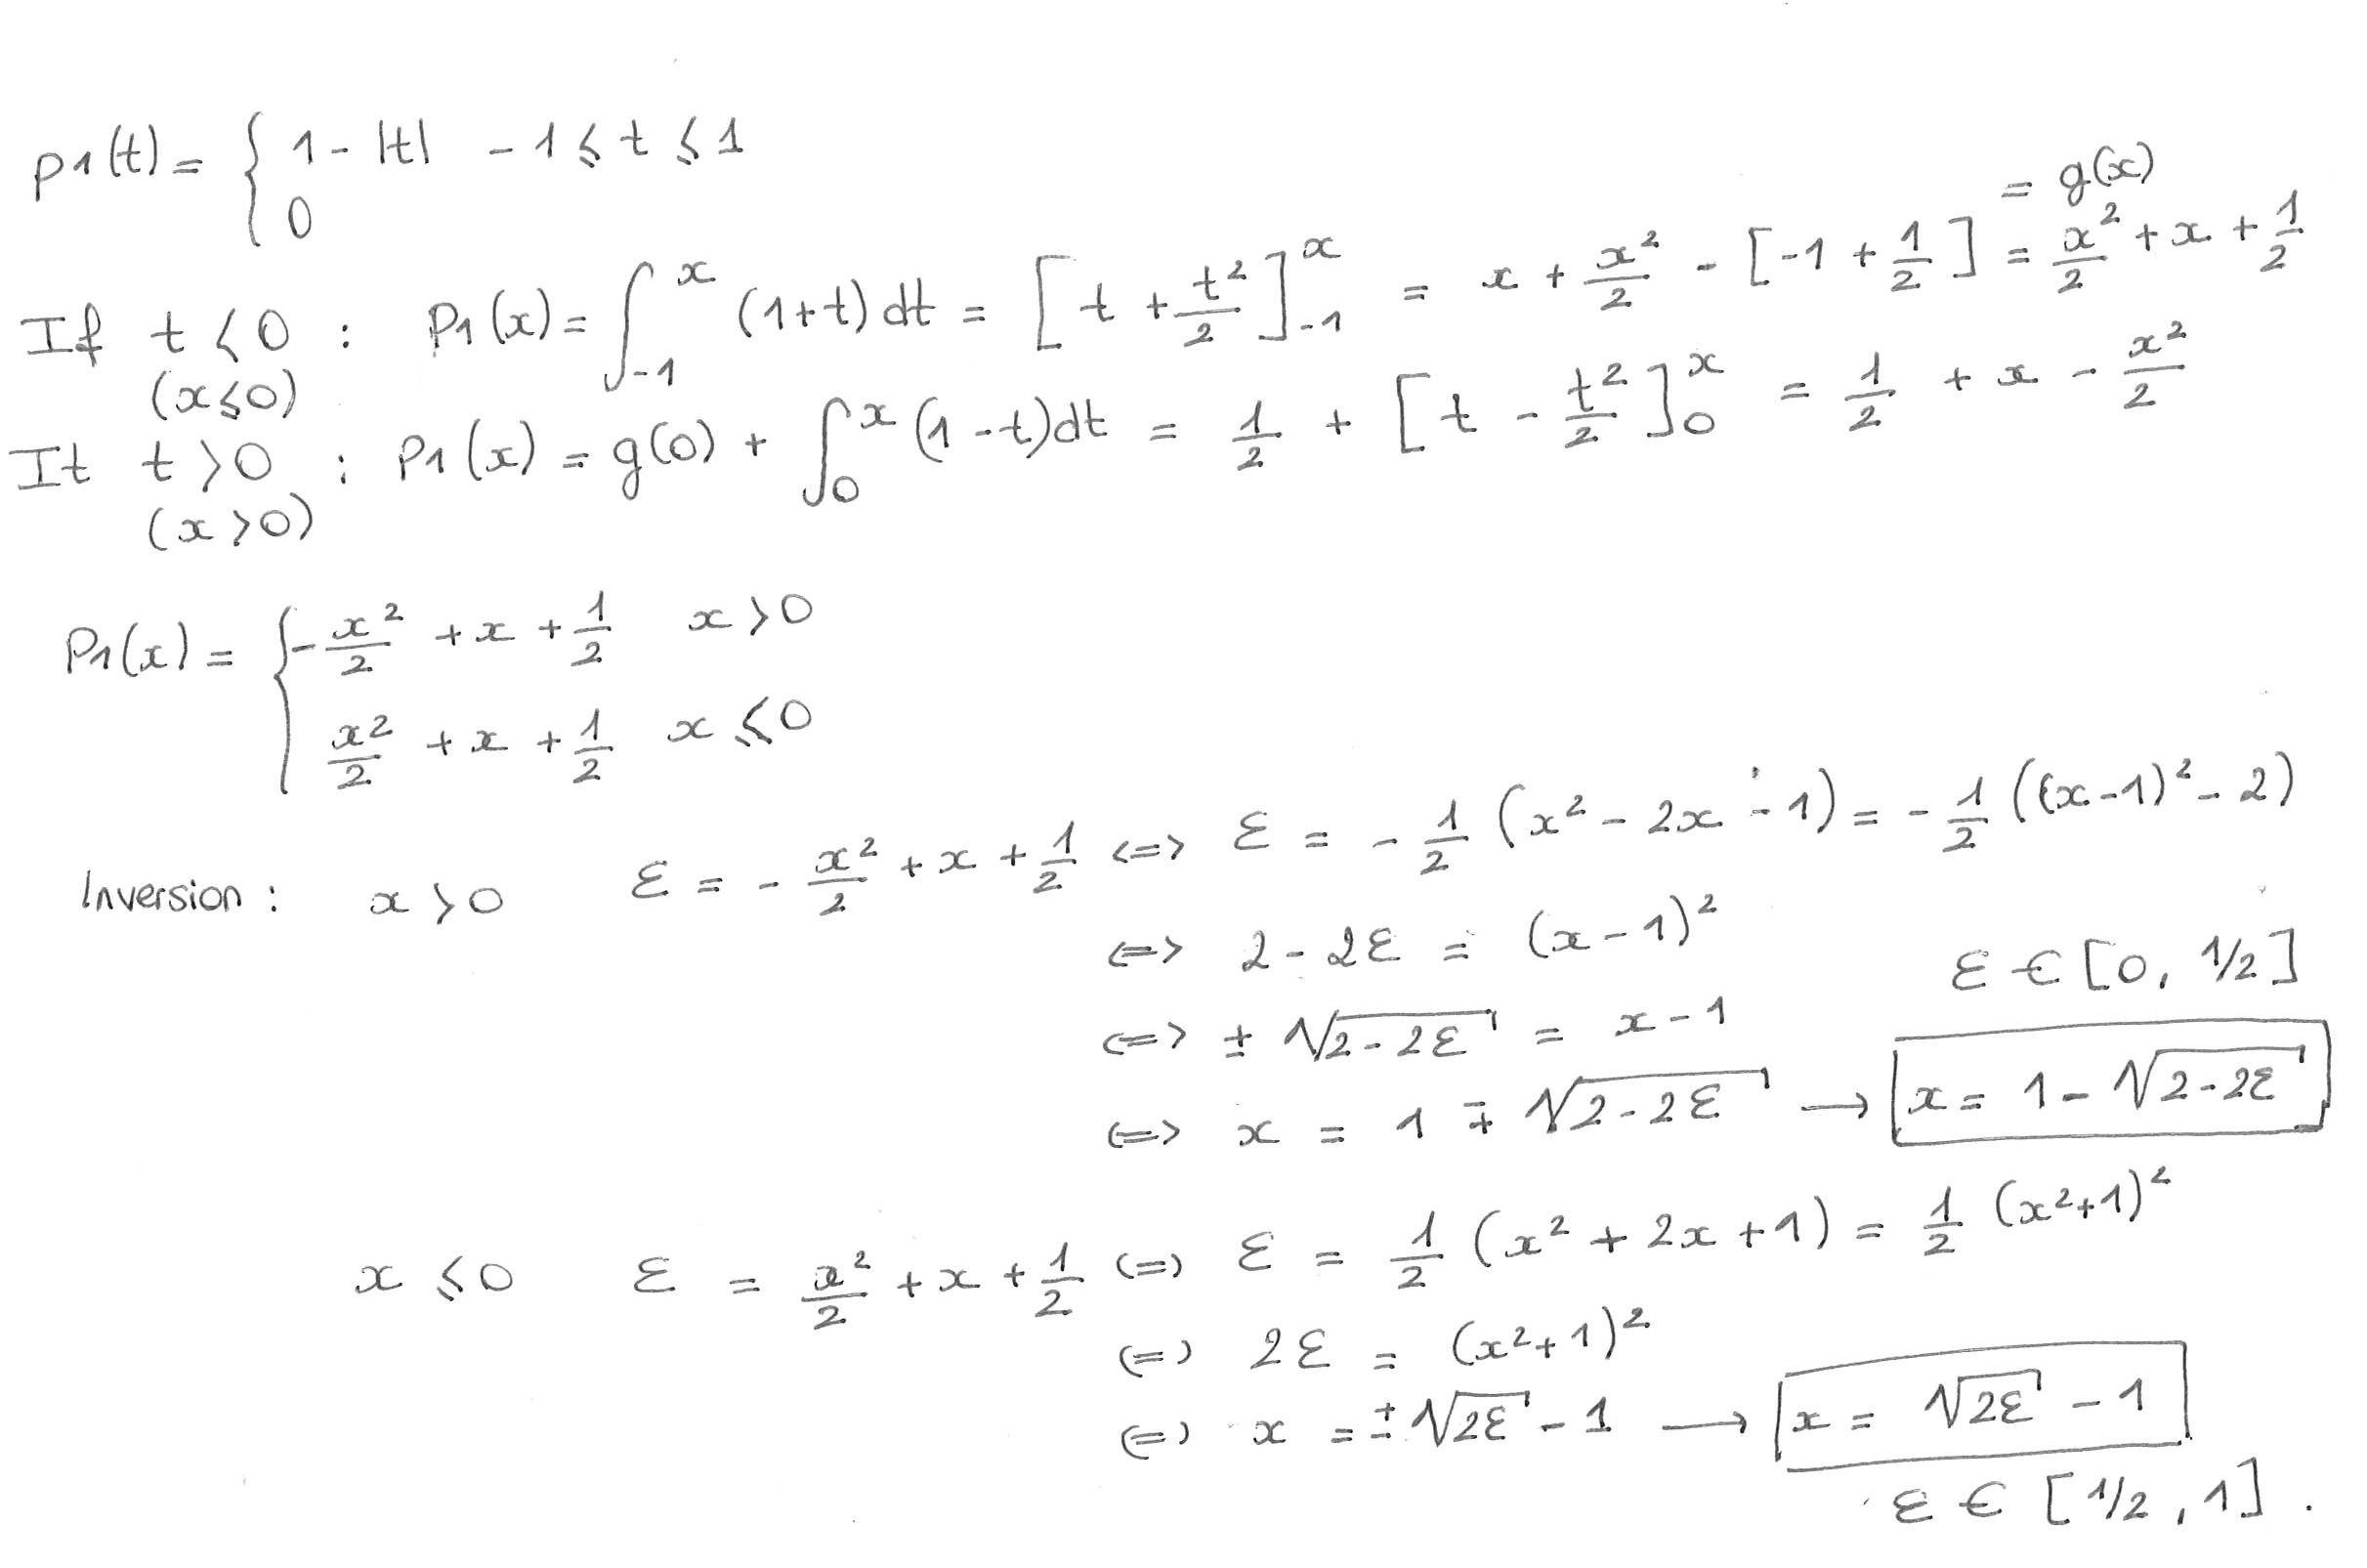 p1(t) = { 1 - |t|   -1 ≤ t ≤ 1
0
= g(x)
If t < 0 : P1(x) = ∫_{-1}^{x} (1+t) dt = [t + t²/2]_{-1}^{x} = x + x²/2 - [-1 + 1/2] = x²/2 + x + 1/2
(x ≤ 0)
It t > 0 : P1(x) = g(0) + ∫_{0}^{x} (1-t) dt = 1/2 + [t - t²/2]_{0}^{x} = 1/2 + x - x²/2
(x > 0)
P1(x) = { -x²/2 + x + 1/2   x > 0
x²/2 + x + 1/2   x ≤ 0
Inversion : x > 0   ε = -x²/2 + x + 1/2 <=> ε = -1/2 (x² - 2x - 1) = -1/2 ((x-1)² - 2)
<=> 2 - 2ε = (x-1)²
ε ∈ [0, 1/2]
<=> ± √(2-2ε) = x - 1
<=> x = 1 ∓ √(2-2ε) → x = 1 - √(2-2ε)
x ≤ 0   ε = x²/2 + x + 1/2 <=> ε = 1/2 (x² + 2x + 1) = 1/2 (x²+1)²
<=> 2ε = (x²+1)²
<=> x = ± √(2ε) - 1 → x = √(2ε) - 1
ε ∈ [1/2, 1].